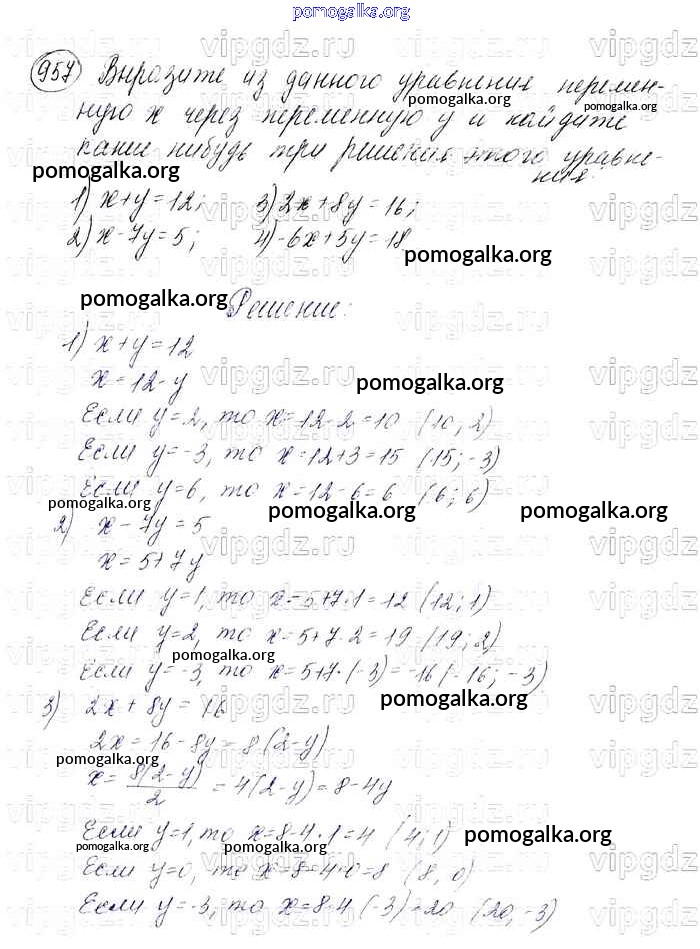 pomogalka.org
957 Выразите из данного уравнения перемен-
ную x через переменную y и найдите
какие нибудь три решения этого уравне-
ния:
1) x+y=12; 3) 2x+8y=16;
2) x-7y=5; 4) -6x+5y=18
Решение:
1) x+y=12
x=12-y
Если y=2, то x=12-2=10 (10; 2)
Если y=-3, то x=12+3=15 (15; -3)
Если y=6, то x=12-6=6 (6; 6)
2) x-7y=5
x=5+7y
Если y=1, то x=5+7·1=12 (12; 1)
Если y=2, то x=5+7·2=19 (19; 2)
Если y=-3, то x=5+7·(-3)=-16 (-16; -3)
3) 2x+8y=16
2x=16-8y=8(2-y)
x=8(2-y)/2=4(2-y)=8-4y
Если y=1, то x=8-4·1=4 (4; 1)
Если y=0, то x=8-4·0=8 (8, 0)
Если y=-3, то x=8-4(-3)=20 (20, -3)